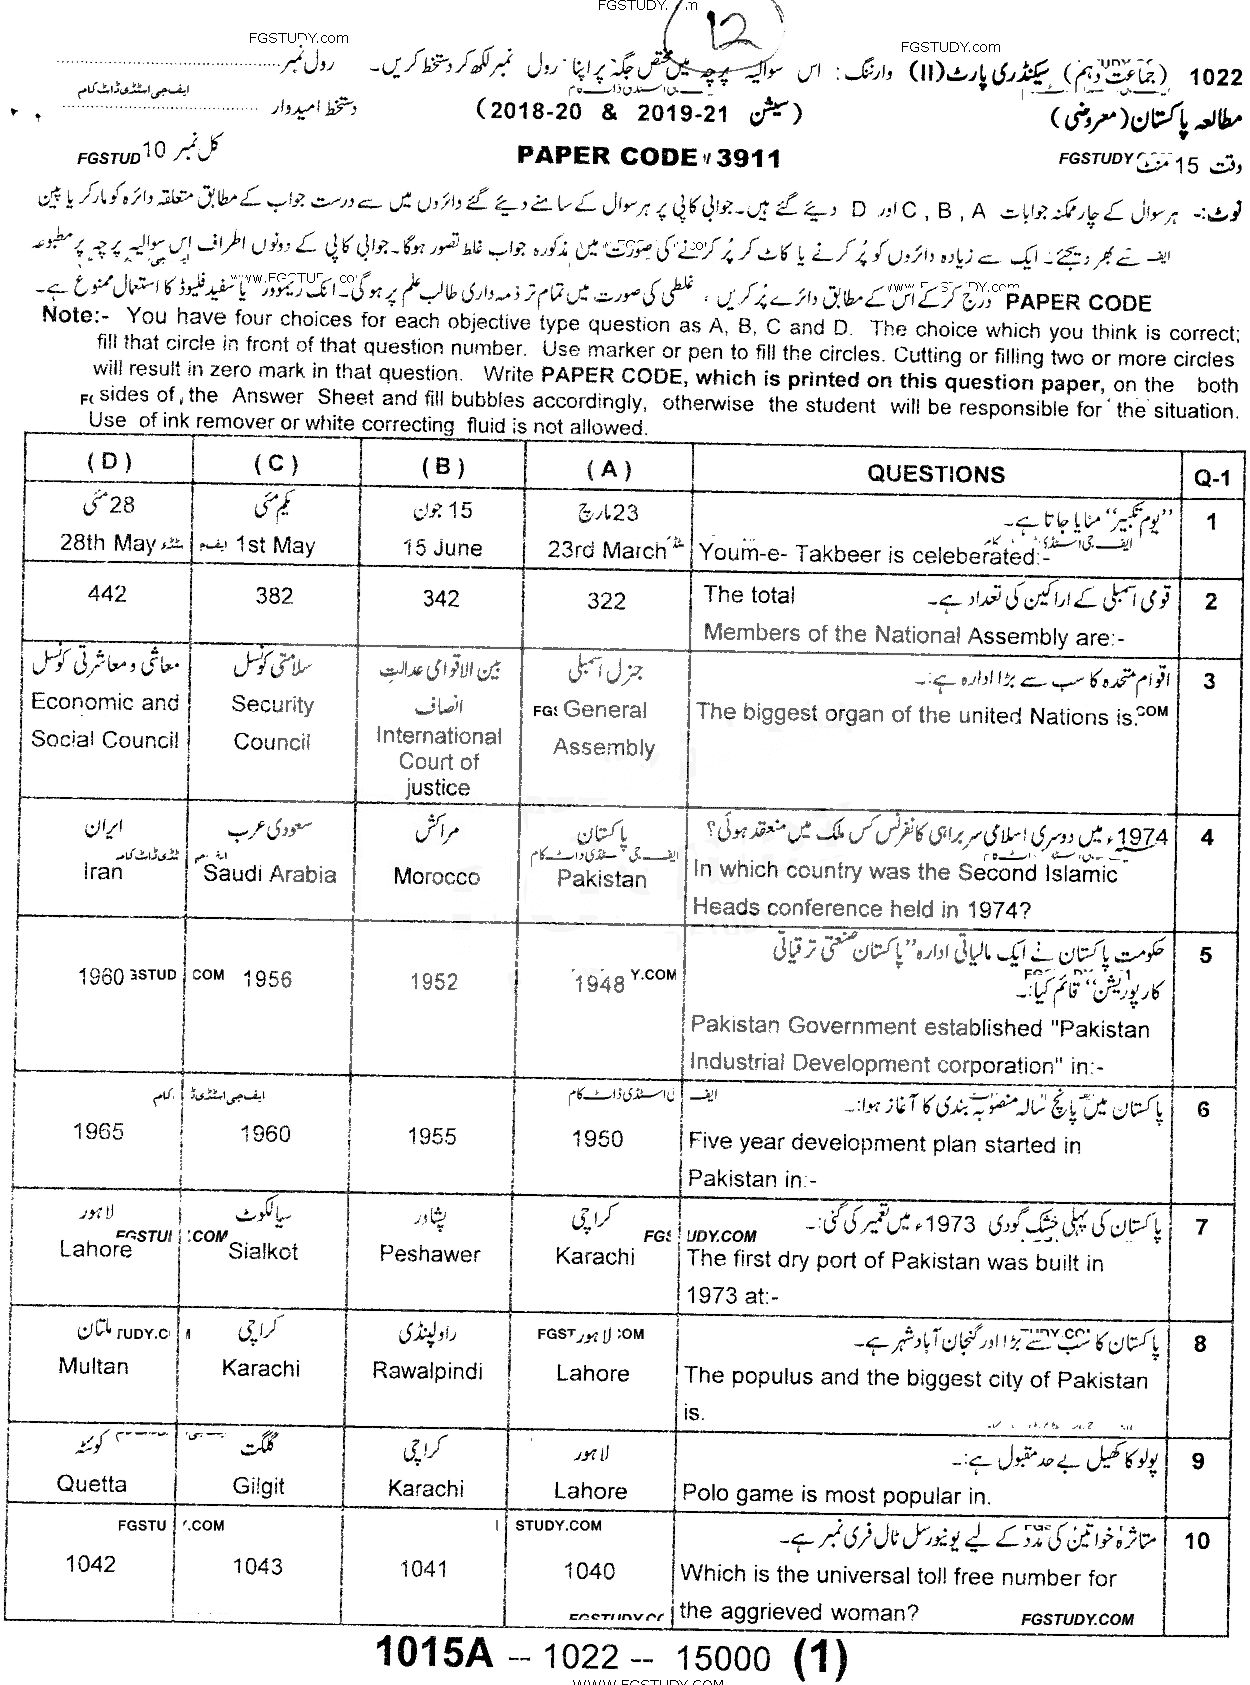 FGSTUDY.
12
FGSTUDY.com
FGSTUDY.com
1022 (جماعت دہم) سیکنڈری پارٹ (II) وارننگ: اس سوالیہ پرچہ میں مختص جگہ پر اپنا رول نمبر لکھ کر دستخط کریں۔ رول نمبر
مطالعہ پاکستان (معروضی) (سیشن 2019-21 & 2018-20) دستخط امیدوار ایف جی اسٹڈی ڈاٹ کام
وقت 15 منٹ FGSTUDY PAPER CODE 3911 کل نمبر 10 FGSTUD
نوٹ:- ہر سوال کے چار ممکنہ جوابات C , B , A اور D دیئے گئے ہیں۔ جوابی کاپی پر ہر سوال کے سامنے دیئے گئے دائروں میں سے درست جواب کے مطابق متعلقہ دائرہ کو مارکر یا پین
سے بھر دیجئے۔ ایک سے زیادہ دائروں کو پُر کرنے یا کاٹ کر پُر کرنے کی صورت میں مذکورہ جواب غلط تصور ہوگا۔ جوابی کاپی کے دونوں اطراف اس سوالیہ پرچہ پر مطبوعہ
PAPER CODE درج کر کے اس کے مطابق دائرے پُر کریں ، غلطی کی صورت میں تمام تر ذمہ داری طالب علم پر ہوگی۔ انک ریموور یا سفید فلیوڈ کا استعمال ممنوع ہے۔
Note:- You have four choices for each objective type question as A, B, C and D. The choice which you think is correct;
fill that circle in front of that question number. Use marker or pen to fill the circles. Cutting or filling two or more circles
will result in zero mark in that question. Write PAPER CODE, which is printed on this question paper, on the both
sides of the Answer Sheet and fill bubbles accordingly, otherwise the student will be responsible for the situation.
Use of ink remover or white correcting fluid is not allowed.
(D) (C) (B) (A) QUESTIONS Q-1
28 مئی یکم مئی 15 جون 23 مارچ ”یوم تکبیر“ منایا جاتا ہے۔ 1
28th May 1st May 15 June 23rd March Youm-e- Takbeer is celeberated:-
442 382 342 322 The total قومی اسمبلی کے اراکین کی تعداد ہے۔ 2
Members of the National Assembly are:-
معاشی و معاشرتی کونسل سلامتی کونسل بین الاقوامی عدالت جنرل اسمبلی اقوام متحدہ کا سب سے بڑا ادارہ ہے:۔ 3
Economic and Security انصاف General The biggest organ of the united Nations is.
Social Council Council International Assembly
Court of
justice
ایران سعودی عرب مراکش پاکستان 1974ء میں دوسری اسلامی سربراہی کانفرنس کس ملک میں منعقد ہوئی؟ 4
Iran Saudi Arabia Morocco Pakistan In which country was the Second Islamic
Heads conference held in 1974?
حکومت پاکستان نے ایک مالیاتی ادارہ ”پاکستان صنعتی ترقیاتی 5
1960 1956 1952 1948 کارپوریشن“ قائم کیا:۔
Pakistan Government established "Pakistan
Industrial Development corporation" in:-
پاکستان میں پانچ سالہ منصوبہ بندی کا آغاز ہوا:۔ 6
1965 1960 1955 1950 Five year development plan started in
Pakistan in:-
لاہور سیالکوٹ پشاور کراچی پاکستان کی پہلی خشک گودی 1973ء میں تعمیر کی گئی:۔ 7
Lahore Sialkot Peshawer Karachi The first dry port of Pakistan was built in
1973 at:-
ملتان کراچی راولپنڈی لاہور پاکستان کا سب سے بڑا اور گنجان آباد شہر ہے۔ 8
Multan Karachi Rawalpindi Lahore The populus and the biggest city of Pakistan
is.
کوئٹہ گلگت کراچی لاہور پولو کا کھیل بے حد مقبول ہے:۔ 9
Quetta Gilgit Karachi Lahore Polo game is most popular in.
متاثرہ خواتین کی مدد کے لیے یونیورسل ٹال فری نمبر ہے۔ 10
1042 1043 1041 1040 Which is the universal toll free number for
the aggrieved woman? FGSTUDY.COM
1015A -- 1022 -- 15000 (1)
WWW.FGSTUDY.COM